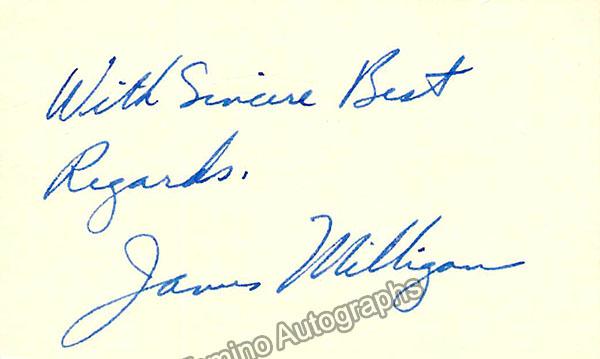 With Sincere Best
Regards.
James Milligan
Tamino Autographs